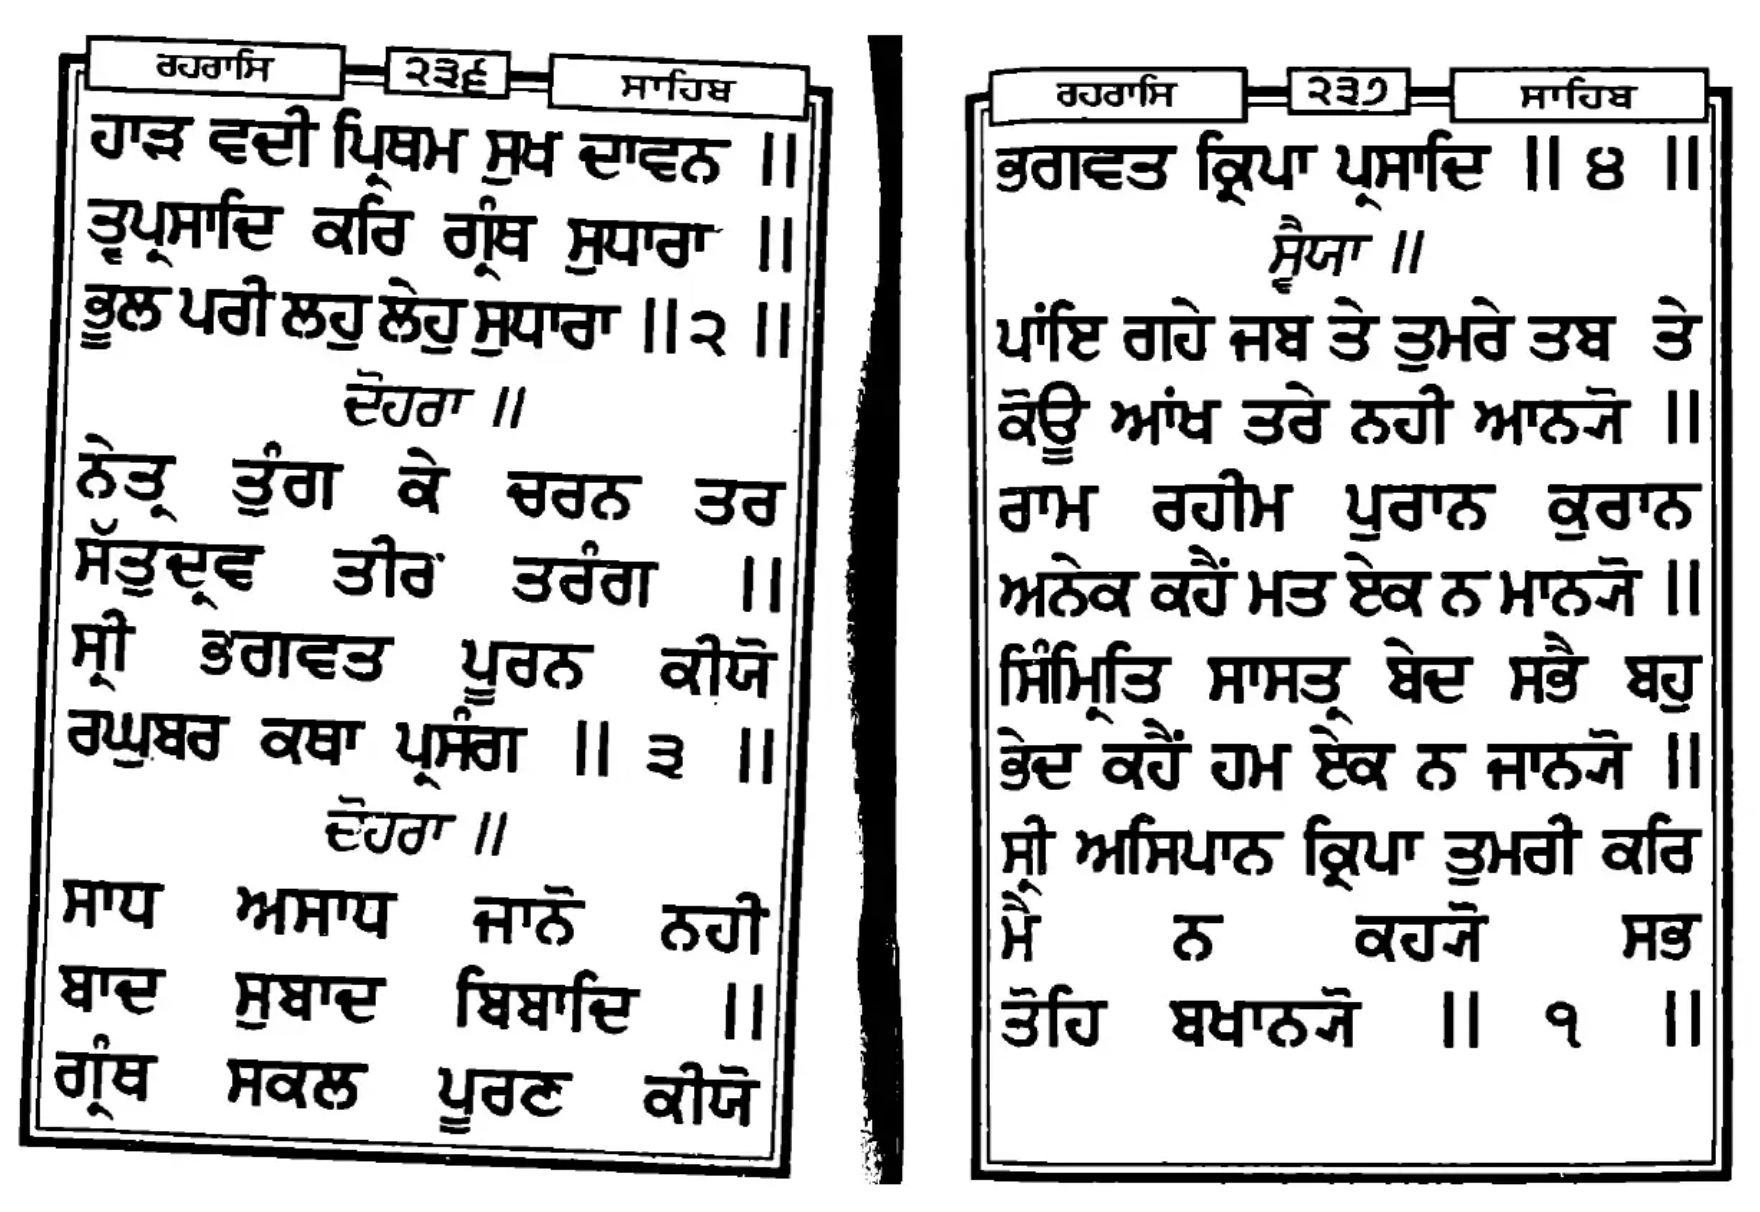 ਰਹਰਾਸਿ ੨੩੬ ਸਾਹਿਬ
ਹਾੜ ਵਦੀ ਪ੍ਰਿਥਮ ਸੁਖ ਦਾਵਨ ॥
ਤ੍ਵਪ੍ਰਸਾਦਿ ਕਰਿ ਗ੍ਰੰਥ ਸੁਧਾਰਾ ॥
ਭੂਲ ਪਰੀ ਲਹੁ ਲੇਹੁ ਸੁਧਾਰਾ ॥੨॥
ਦੋਹਰਾ ॥
ਨੇਤ੍ਰ ਤੁੰਗ ਕੇ ਚਰਨ ਤਰ
ਸੱਤੁਦ੍ਰਵ ਤੀਰ ਤਰੰਗ ॥
ਸ੍ਰੀ ਭਗਵਤ ਪੂਰਨ ਕੀਯੋ
ਰਘੁਬਰ ਕਥਾ ਪ੍ਰਸੰਗ ॥ ੩ ॥
ਦੋਹਰਾ ॥
ਸਾਧ ਅਸਾਧ ਜਾਨੋ ਨਹੀ
ਬਾਦ ਸੁਬਾਦ ਬਿਬਾਦਿ ॥
ਗ੍ਰੰਥ ਸਕਲ ਪੂਰਣ ਕੀਯੋ
ਰਹਰਾਸਿ ੨੩੭ ਸਾਹਿਬ
ਭਗਵਤ ਕ੍ਰਿਪਾ ਪ੍ਰਸਾਦਿ ॥ ੪ ॥
ਸ੍ਵੈਯਾ ॥
ਪਾਂਇ ਗਹੇ ਜਬ ਤੇ ਤੁਮਰੇ ਤਬ ਤੇ
ਕੋਊ ਆਂਖ ਤਰੇ ਨਹੀ ਆਨ੍ਯੋ ॥
ਰਾਮ ਰਹੀਮ ਪੁਰਾਨ ਕੁਰਾਨ
ਅਨੇਕ ਕਹੈਂ ਮਤ ਏਕ ਨ ਮਾਨ੍ਯੋ ॥
ਸਿੰਮ੍ਰਿਤਿ ਸਾਸਤ੍ਰ ਬੇਦ ਸਭੈ ਬਹੁ
ਭੇਦ ਕਹੈਂ ਹਮ ਏਕ ਨ ਜਾਨ੍ਯੋ ॥
ਸ੍ਰੀ ਅਸਿਪਾਨ ਕ੍ਰਿਪਾ ਤੁਮਰੀ ਕਰਿ
ਮੈ ਨ ਕਹ੍ਯੋ ਸਭ
ਤੋਹਿ ਬਖਾਨ੍ਯੋ ॥ ੧ ॥